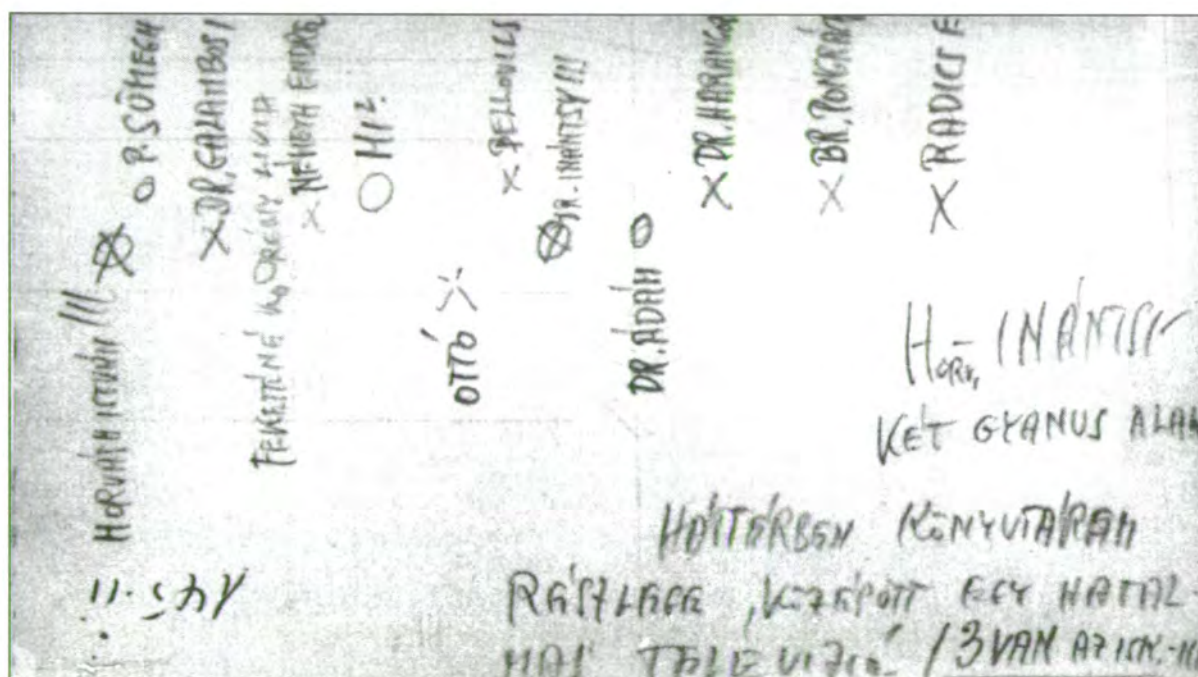 HORVÁTH ISTVÁN !!!
P. SÜMEGH
DR. GALAMBOS
FEKETÉNÉ
NÉMETH ENDRE
MI?
OTTÓ
BELLOVICS
DR. INÁNTSY!!!
DR. ÁDÁM
DR. HARANG
BR. PONGRÁCZ
RADICS F
HORV, INÁNTSY
KÉT GYANUS ALAK
HÁTTÉRBEN KÖNYVTÁRAM
RÉSZLEGE, KÖZÉPÜTT EGY HATAL-
MAS TELEVIZIÓ / 3 VAN AZ ISK.-